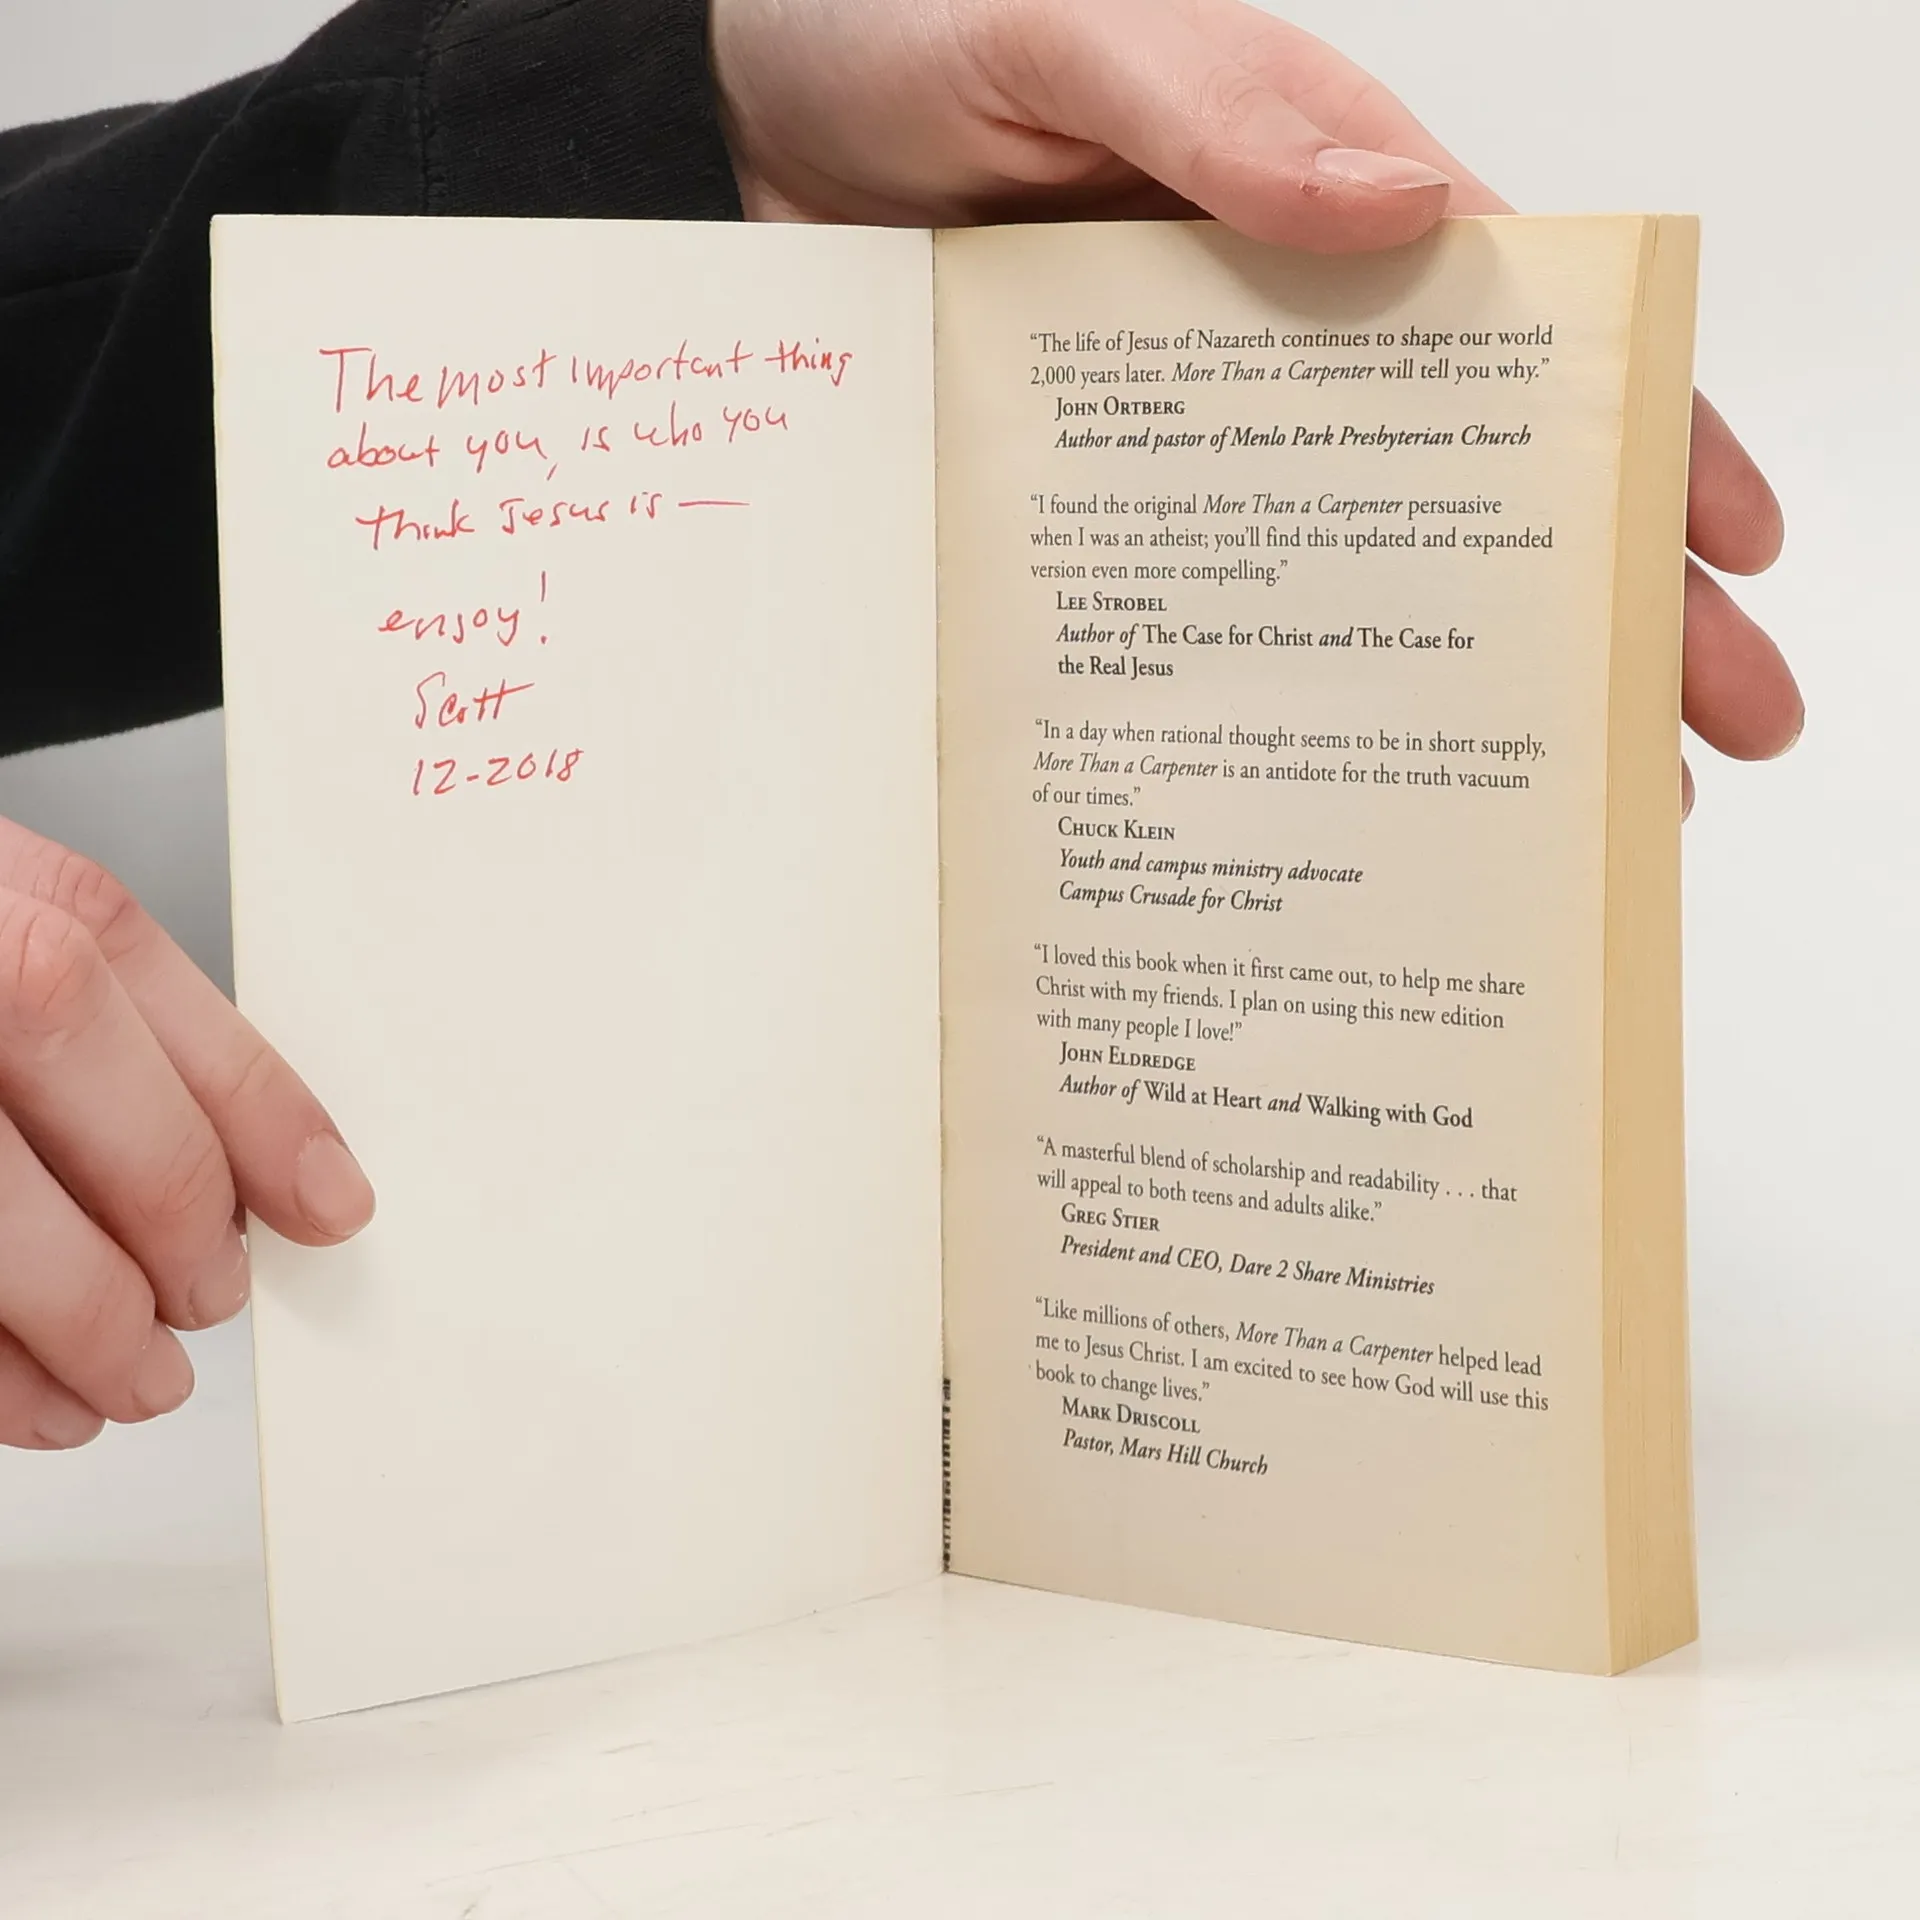 The most important thing
about you, is who you
think Jesus is —
enjoy!
Scott
12-2018
“The life of Jesus of Nazareth continues to shape our world
2,000 years later. More Than a Carpenter will tell you why.”
JOHN ORTBERG
Author and pastor of Menlo Park Presbyterian Church
“I found the original More Than a Carpenter persuasive
when I was an atheist; you’ll find this updated and expanded
version even more compelling.”
LEE STROBEL
Author of The Case for Christ and The Case for
the Real Jesus
“In a day when rational thought seems to be in short supply,
More Than a Carpenter is an antidote for the truth vacuum
of our times.”
CHUCK KLEIN
Youth and campus ministry advocate
Campus Crusade for Christ
“I loved this book when it first came out, to help me share
Christ with my friends. I plan on using this new edition
with many people I love!”
JOHN ELDREDGE
Author of Wild at Heart and Walking with God
“A masterful blend of scholarship and readability . . . that
will appeal to both teens and adults alike.”
GREG STIER
President and CEO, Dare 2 Share Ministries
“Like millions of others, More Than a Carpenter helped lead
me to Jesus Christ. I am excited to see how God will use this
book to change lives.”
MARK DRISCOLL
Pastor, Mars Hill Church